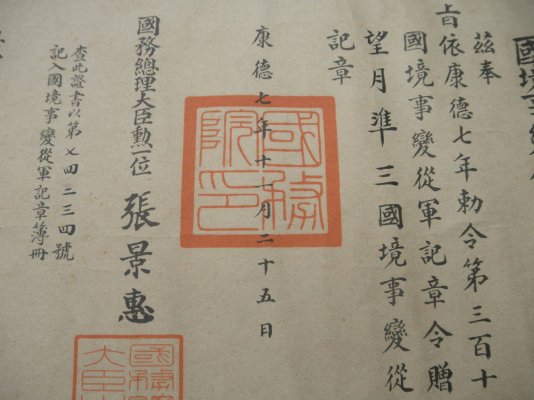 國境事變從
茲奉
旨依康德七年勅令第三百十
國境事變從軍記章令贈
望月準三國境事變從
記章
康德七年十一月二十五日
國務院印
國務總理大臣勳一位 張景惠
國務總理大臣
查此證書以第七四二三四號
記入國境事變從軍記章簿冊